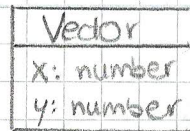 Vector
x: number
y: number